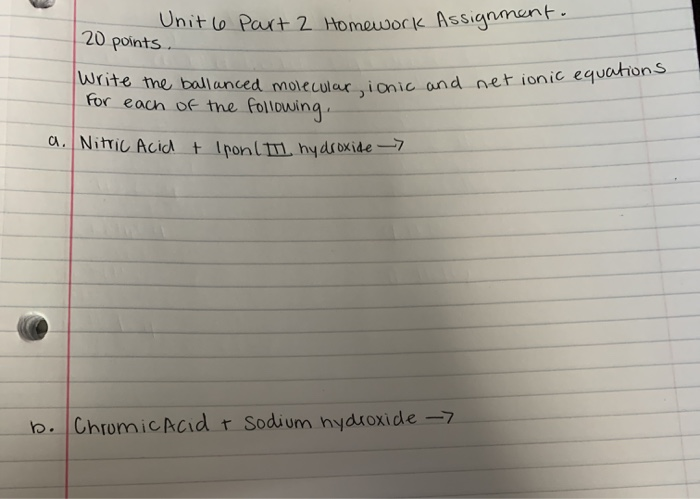 Unit 6 Part 2 Homework Assignment.
20 points.
Write the ballanced molecular, ionic and net ionic equations
For each of the following.
a. Nitric Acid + Ipon(III hydroxide →
b. Chromic Acid + Sodium hydroxide →